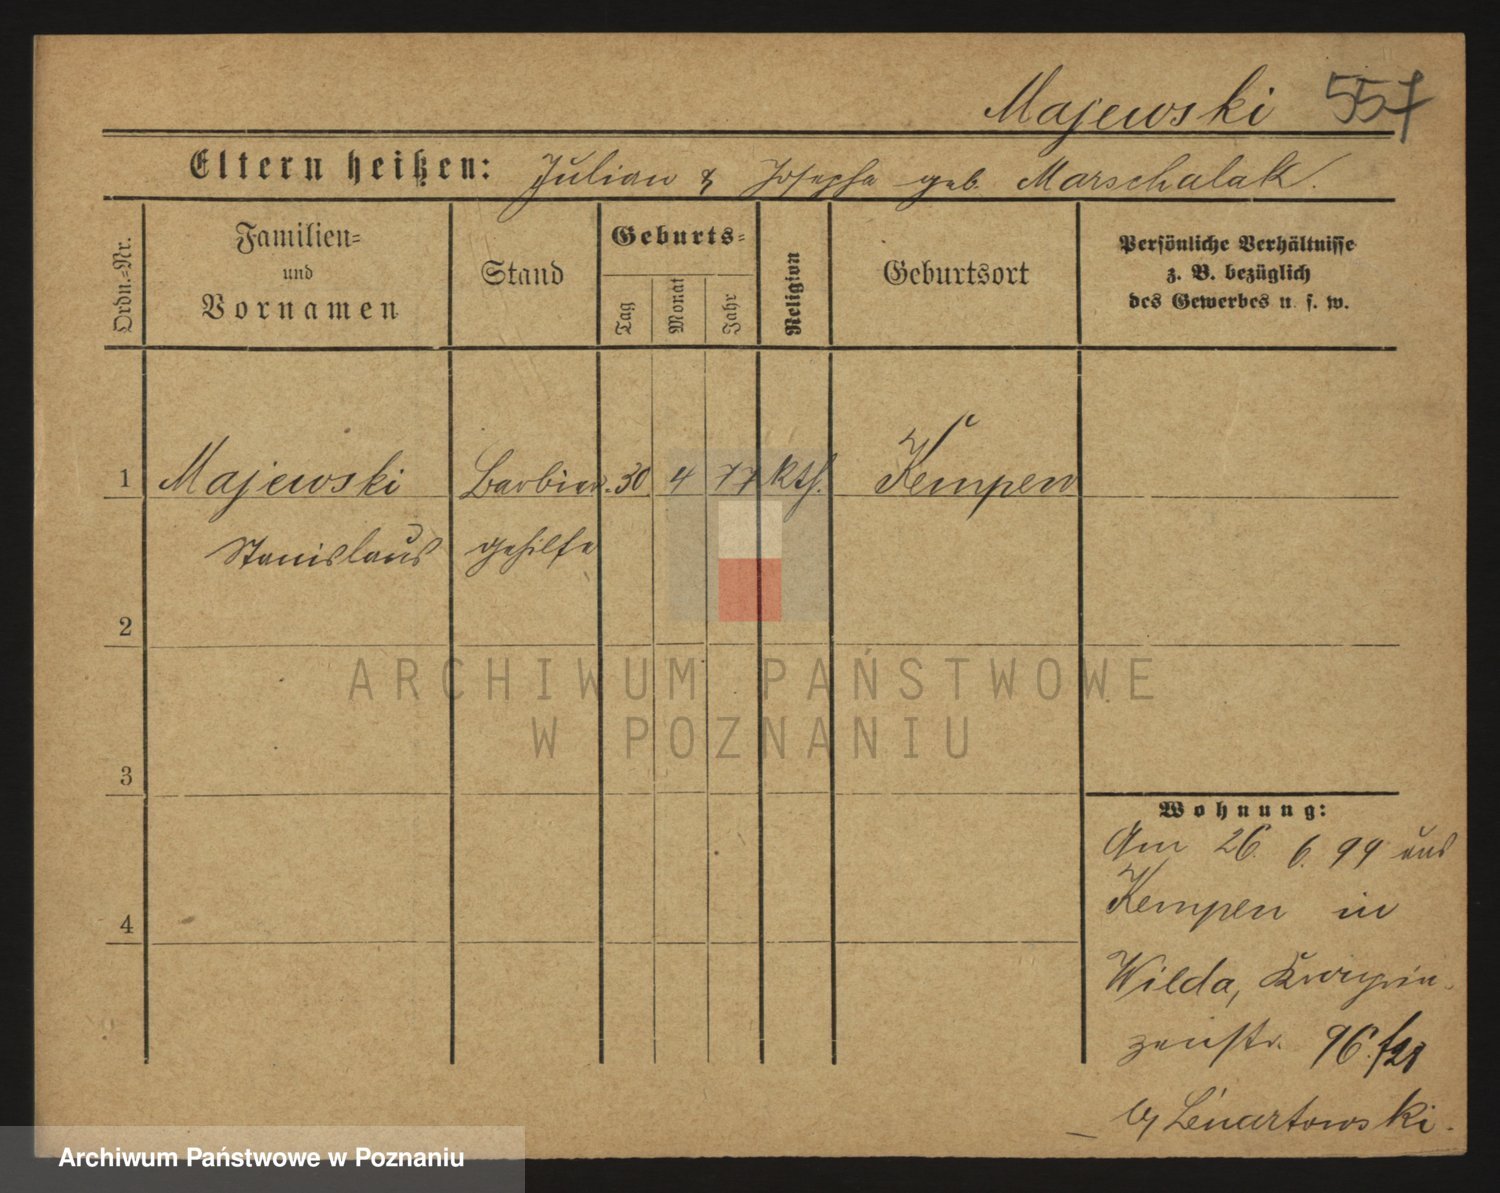 Majewski 557
Eltern heißen: Julian & Josepha geb. Marschalak.
Ordn.-Nr.
Familien-
und
Vornamen
Stand
Geburts-
Tag
Monat
Jahr
Religion
Geburtsort
Persönliche Verhältnisse
z. B. bezüglich
des Gewerbes u. s. w.
1 Majewski Barbier- 30 4 77 kth. Kempen
Stanislaus gehilfe
2
ARCHIWUM PAŃSTWOWE
W POZNANIU
3
Wohnung:
Am 26. 6. 99 aus
Kempen in
4
Wilda, Kronprin-
zenstr. 96
b/ Lenartowski.
Archiwum Państwowe w Poznaniu